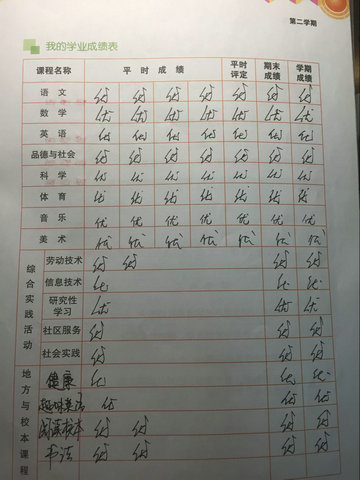 第二学期
我的学业成绩表
课程名称 平时成绩 平时评定 期末成绩 学期成绩
语文 优 优 优 优 优 优 优
数学 优 优 优 优 优 优 优
英语 优 优 优 优 优 优 优
品德与社会 优 优 优 优 优 优 优
科学 优 优 优 优 优 优 优
体育 优 优 优 优 优 优 优
音乐 优 优 优 优 优 优 优
美术 优 优 优 优 优 优 优
综合实践活动
劳动技术 优 优 优 优
信息技术 优 优 优
研究性学习 优 优 优
社区服务 优 优 优
社会实践 优 优 优
地方与校本课程
健康 优 优 优
趣味英语 优 优 优
阅读校本 优 优 优 优
书法 优 优 优 优